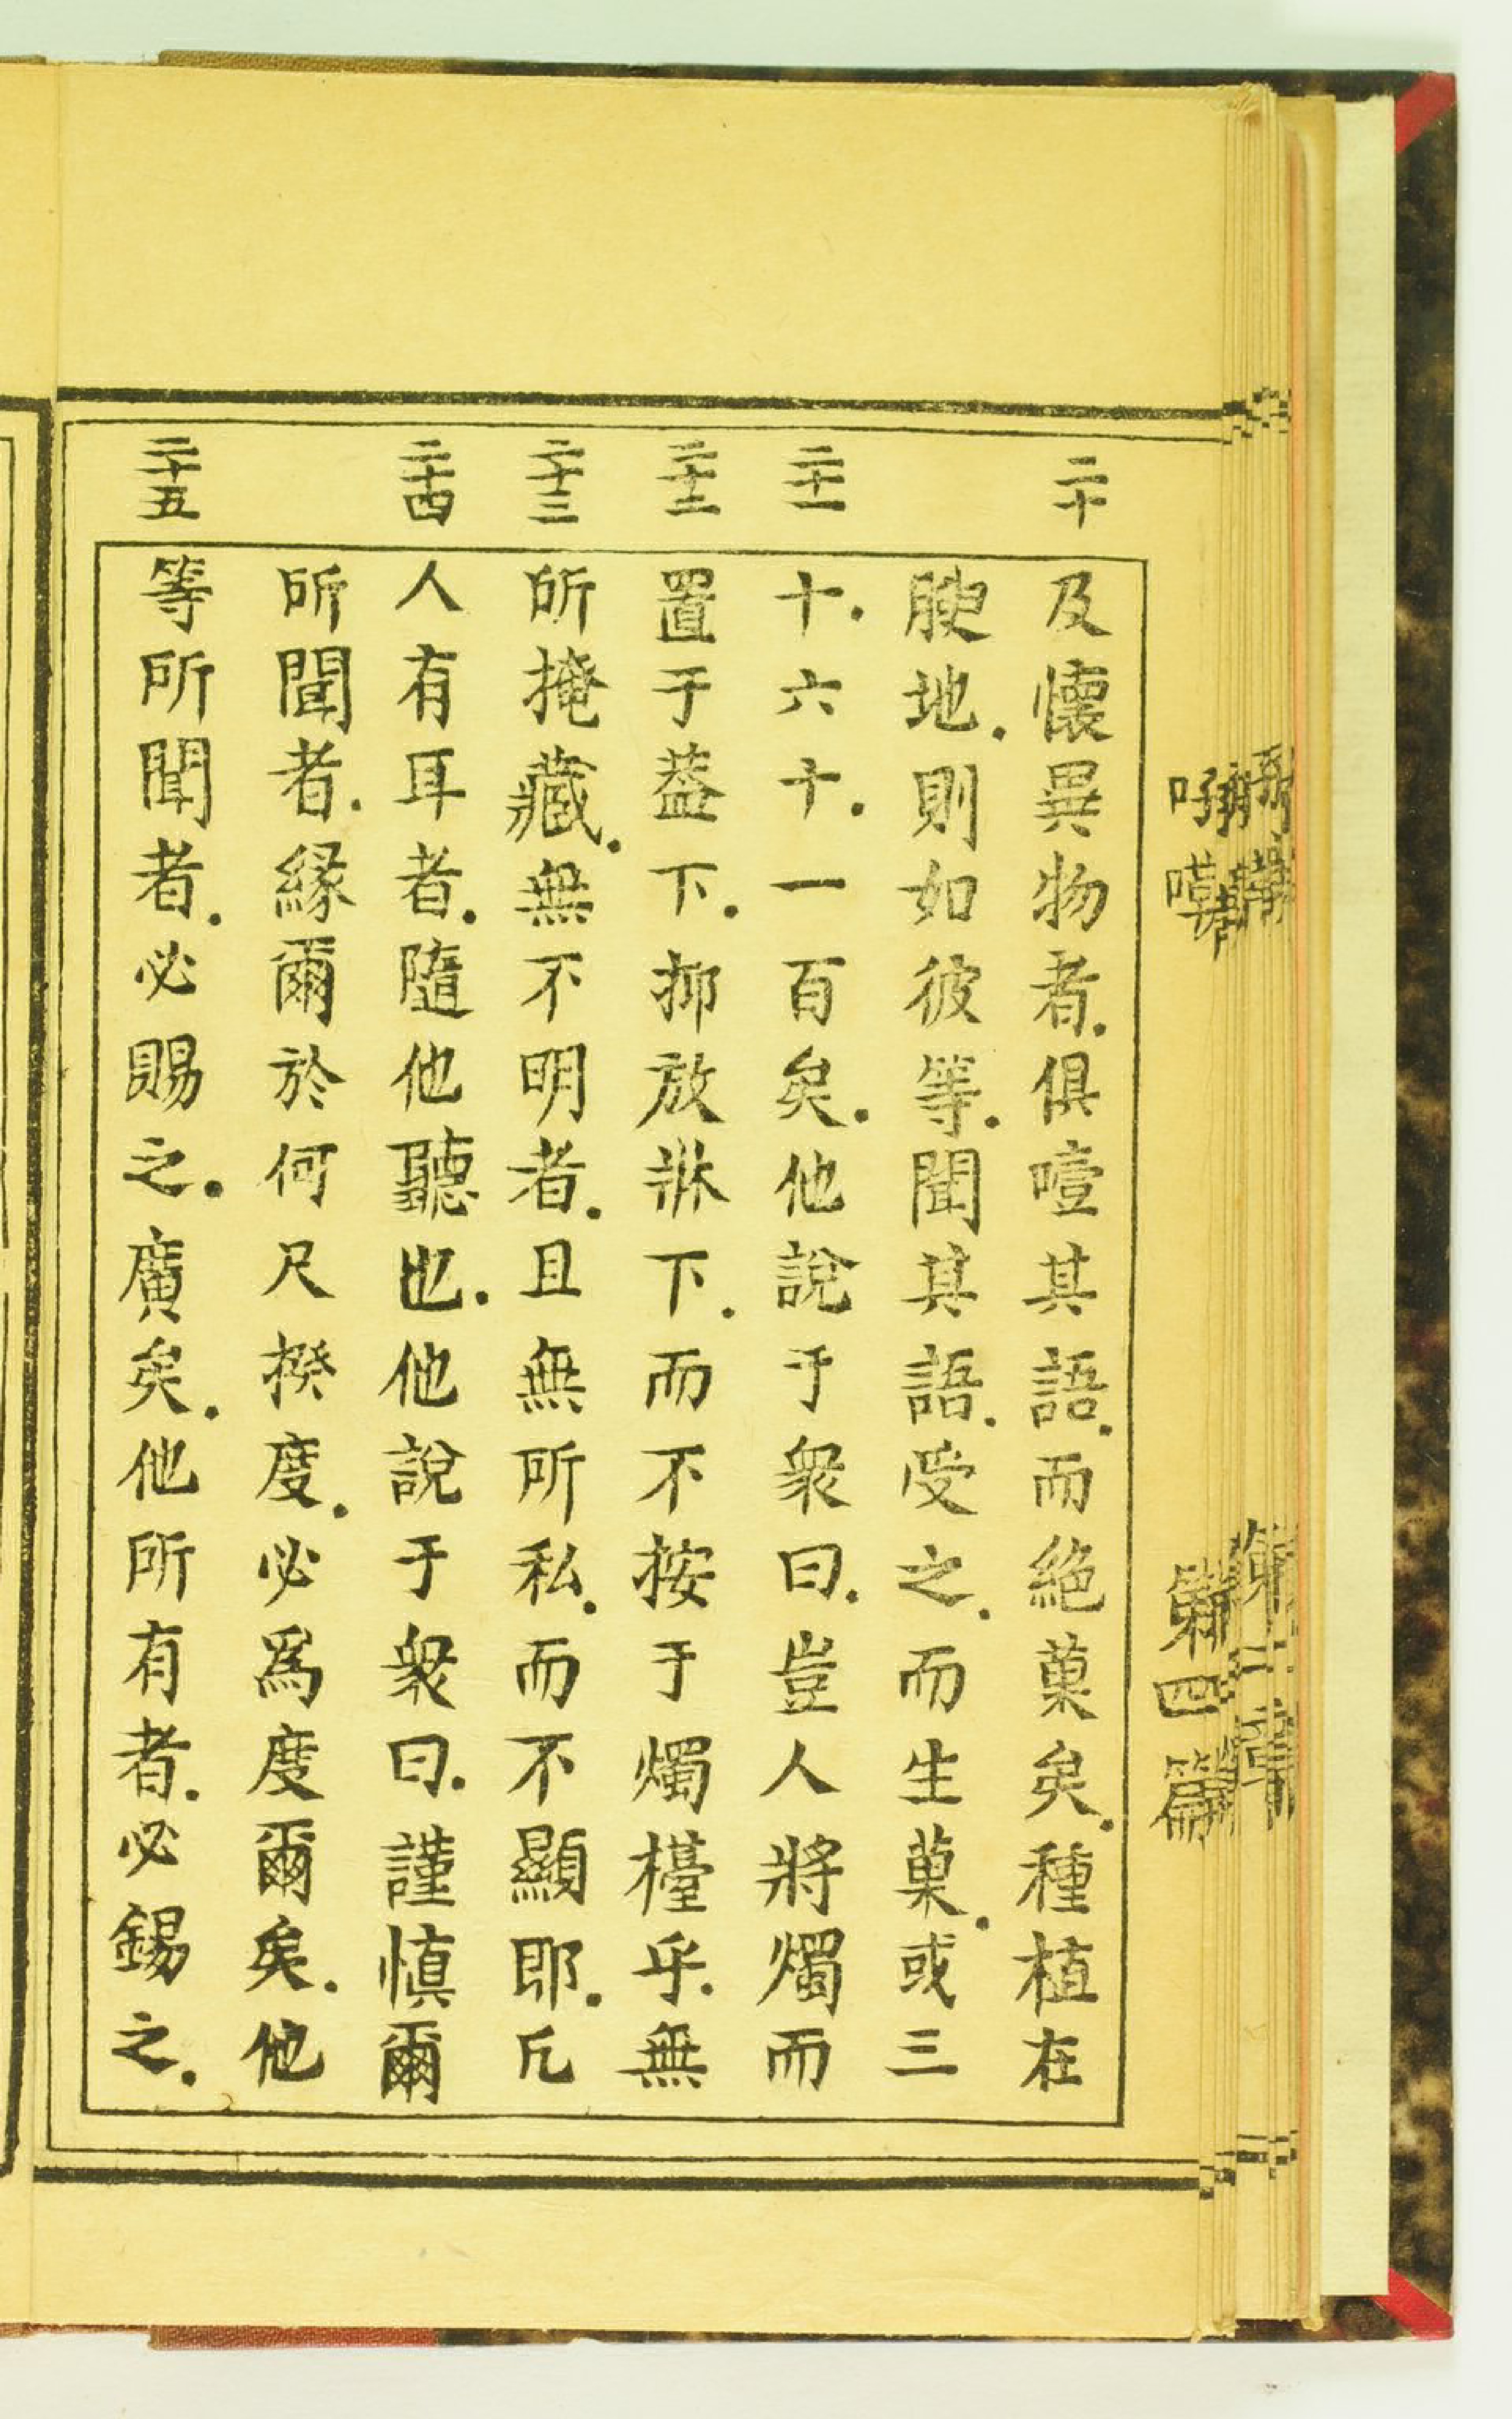 第四篇
二十
及懷異物者.俱噎其語.而絕菓矣.種植在
腴地.則如彼等.聞其語.受之.而生菓.或三
二十一
十.六十.一百矣.他說于衆曰.豈人將燭而
二十二
置于蓋下.抑放牀下.而不按于燭檯乎.無
二十三
所掩藏.無不明者.且無所私.而不顯耶.凡
二十四
人有耳者.隨他聽也.他說于衆曰.謹慎爾
所聞者.緣爾於何尺揆度.必爲度爾矣.他
二十五
等所聞者.必賜之.廣矣.他所有者.必錫之.